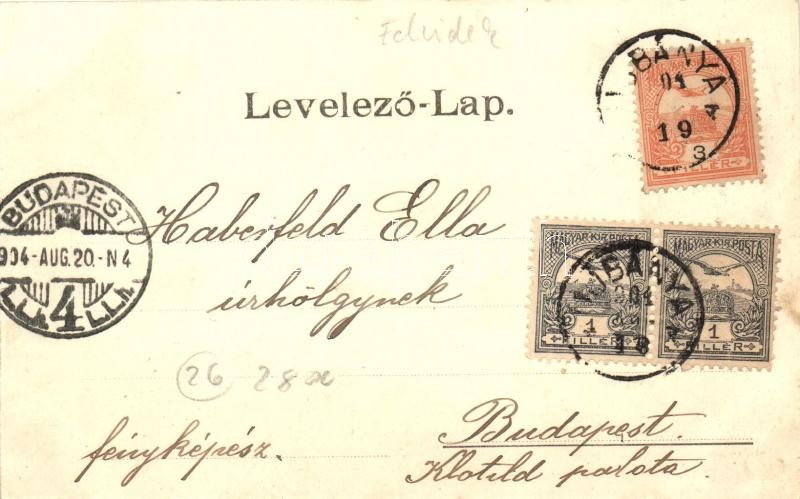 Felvidék
Levelező-Lap.
BÁNYA
04
19
3
FILLÉR
BUDAPEST
904-AUG.20.-N4
4
Haberfeld Ella
úrhölgynek
MAGYAR·KIR·POSTA
MAGYAR·KIR·POSTA
BÁNYA
904
18
1
FILLÉR
1
FILLÉR
26 28
fényképész.
Budapest.
Klotild palota.